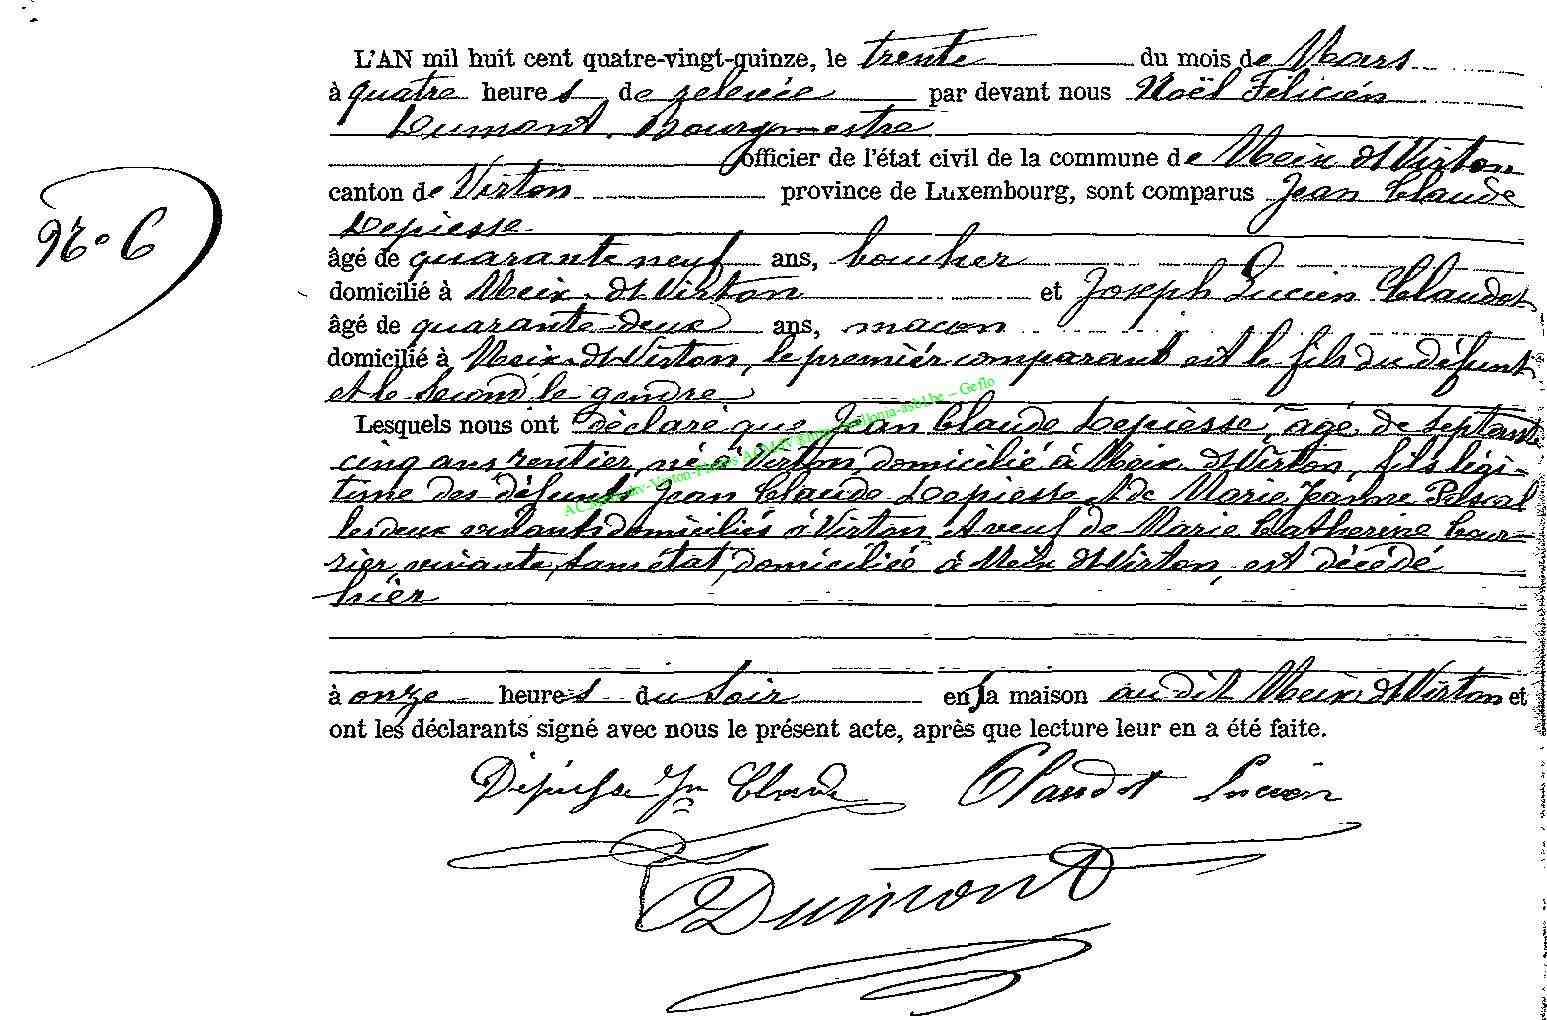 L'AN mil huit cent quatre-vingt-quinze, le trente du mois de Mars
à quatre heures de relevée par devant nous Noël Félicien
Dumont, Bourgmestre
officier de l'état civil de la commune de Meix dt Virton
canton de Virton province de Luxembourg, sont comparus Jean Claude
N.o 6
Depiesse
âgé de quarante neuf ans, boucher
domicilié à Meix dt Virton et Joseph Lucien Claudot
âgé de quarante-deux ans, maçon
domicilié à Meix dt Virton, le premier comparant est le fils du défunt
et le second le gendre
Lesquels nous ont déclaré que Jean Claude Depiesse, âgé de septante
cinq ans, rentier, né à Virton, domicilié à Meix dt Virton, fils légi-
time des défunts Jean Claude Depiesse et de Marie Jeanne Pascal
les deux vivants domiciliés à Virton et veuf de Marie Catherine Cour-
rier, vivante, sans état, domiciliée à Meix dt Virton, est décédé
hier
à onze heures du soir en la maison au dit Meix dt Virton et
ont les déclarants signé avec nous le présent acte, après que lecture leur en a été faite.
Depiesse Jn Claude Claudot Lucien
Dumont